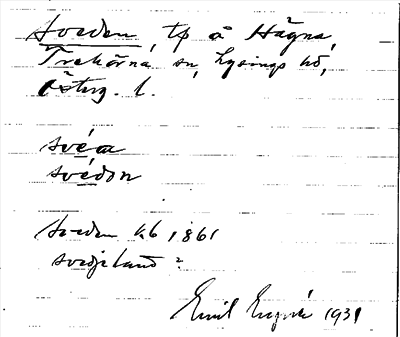 Sveden, tp å Hägna,
Trehörna sn, Lysings hd,
Österg. l.
svéa
svédon
Sveden kb 1861
svedjeland?
Emil 1931